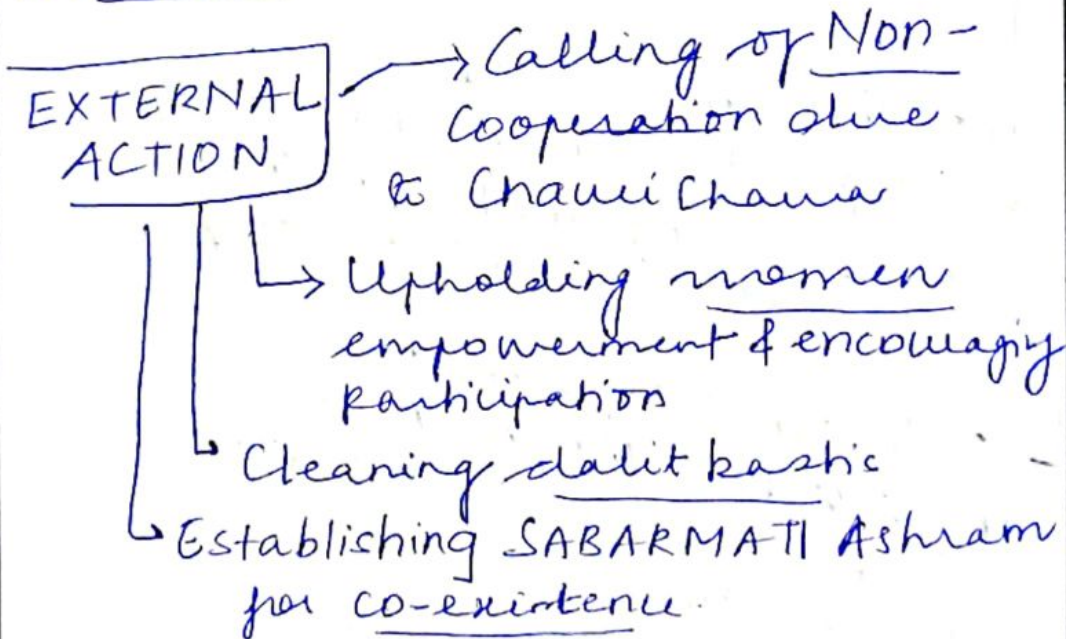 EXTERNAL
ACTION
→ Calling of Non-
Cooperation due
to Chauri Chaura
→ Upholding women
empowerment & encouraging
participation
Cleaning dalit bastis
Establishing SABARMATI Ashram
for co-existence.